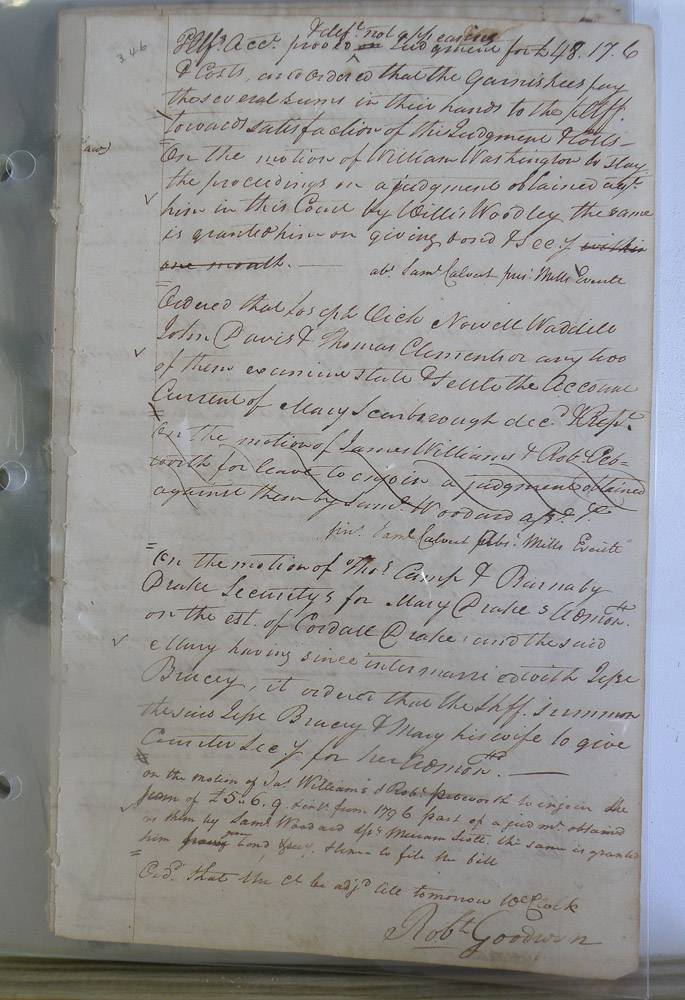 346
& deft. not appearing
Pltfs. Acct. proved Judgment for £48.17.6
& Costs, and ordered that the garnishees pay
the several sums in their hands to the pltff.
towards satisfaction of the Judgment & Costs—
On the motion of William Washington to stay
the proceedings on a judgment obtained agt.
him in this Court by Willis Woodley the same
is granted him on giving bond & Secy within
one month. —
abt. Saml Calvert prest. Mills Everitt
Ordered that Joseph Vick Nowell Waddill
John Davis & Thomas Clements or any two
of them examine state & settle the Account
Current of Mary Scarborough decd. & Rept.
On the motion of James Williams & Robt. Peb=
worth for leave to enjoin a judgment obtained
against them by Saml. Woodard
Saml Calvert abst. Mills Everitt
On the motion of Thos. Camp & Barnaby
Drake Securitys for Mary Drake's Admon.
on the est. of Cordall Drake, and the said
Mary having since intermarried with Jesse
Bracey, it ordered that the Shff. summon
the said Jesse Bracey & Mary his wife to give
Counter Secy for her Admon. —
on the motion of Jas. Williams & Robt. Pebworth to injoin the
sum of £5.6.9 from 1796 part of a judmt. obtained
as them by Saml Woodard the same is granted
him bond & to file the bill
Ordd. that the Ct be adjd till tomorrow 10 oClock
Robt Goodwyn